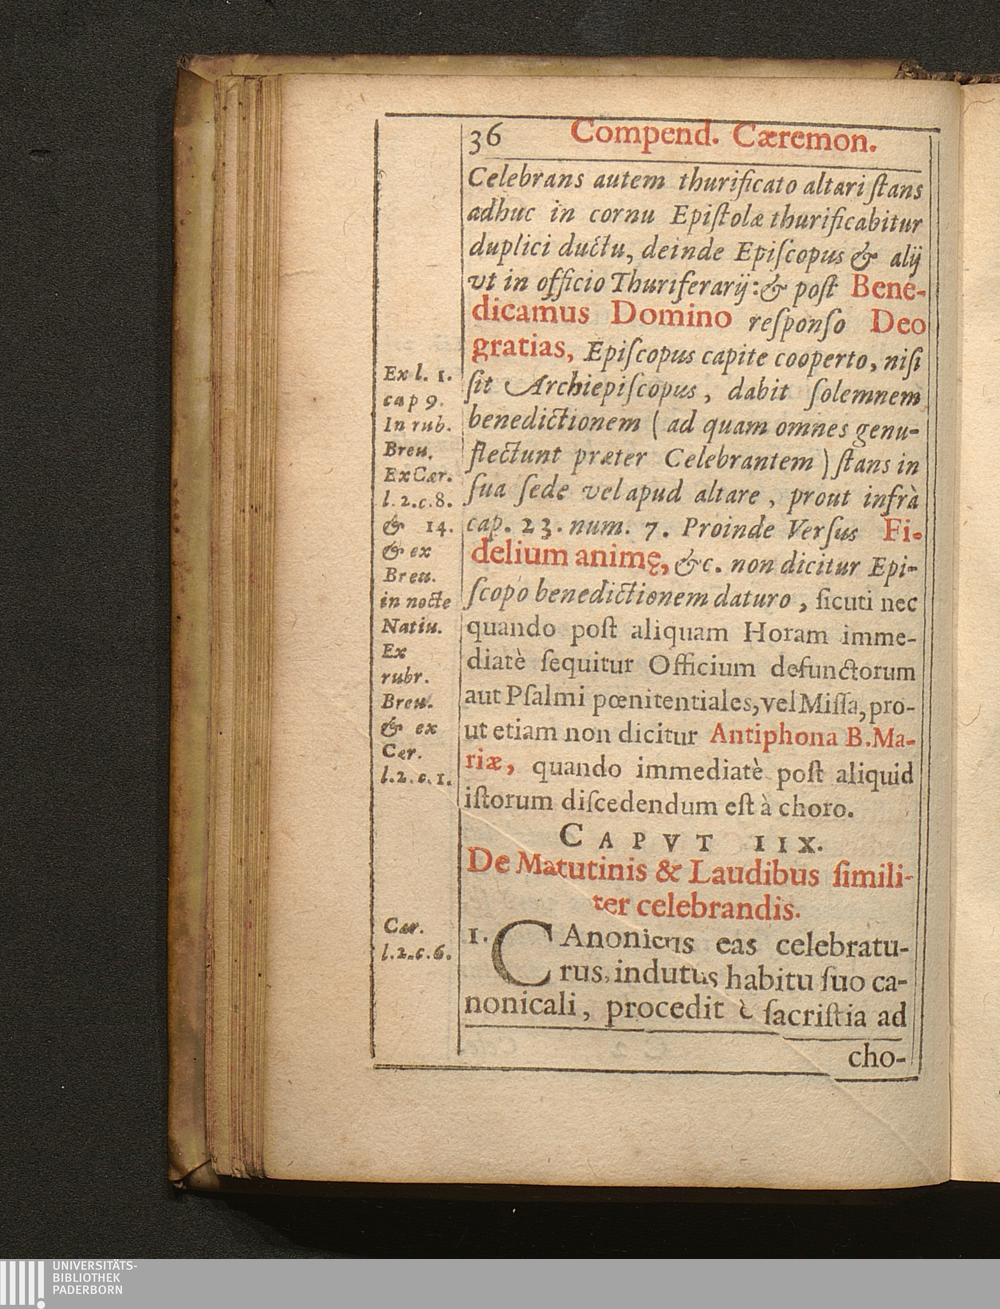 36 Compend. Cæremon.
Celebrans autem thurificato altari ſtans
adhuc in cornu Epiſtolæ thurificabitur
duplici ductu, deinde Epiſcopus & alij
vt in officio Thuriferarij: & poſt Bene-
dicamus Domino reſponſo Deo
gratias, Epiſcopus capite cooperto, niſi
ſit Archiepiſcopus, dabit ſolemnem
benedictionem ( ad quam omnes genu-
flectunt præter Celebrantem ) ſtans in
ſua ſede vel apud altare, prout infrà
cap. 23. num. 7. Proinde Verſus Fi-
delium animę, &c. non dicitur Epi-
ſcopo benedictionem daturo, ſicuti nec
quando poſt aliquam Horam imme-
diatè ſequitur Officium defunctorum
aut Pſalmi pœnitentiales, vel Miſſa, pro-
ut etiam non dicitur Antiphona B. Ma-
riæ, quando immediatè poſt aliquid
iſtorum diſcedendum eſt à choro.
Ex l. 1.
cap 9.
In rub.
Breu.
Ex Cær.
l. 2. c. 8.
& 14.
& ex
Breu.
in nocte
Natiu.
Ex
rubr.
Breu.
& ex
Cær.
l. 2. c. 1.
CAPVT IIX.
De Matutinis & Laudibus ſimili-
ter celebrandis.
Cær.
l. 2. c. 6.
1. CAnonicus eas celebratu-
rus, indutus habitu ſuo ca-
nonicali, procedit è ſacriſtia ad
cho-
UNIVERSITÄTS-
BIBLIOTHEK
PADERBORN